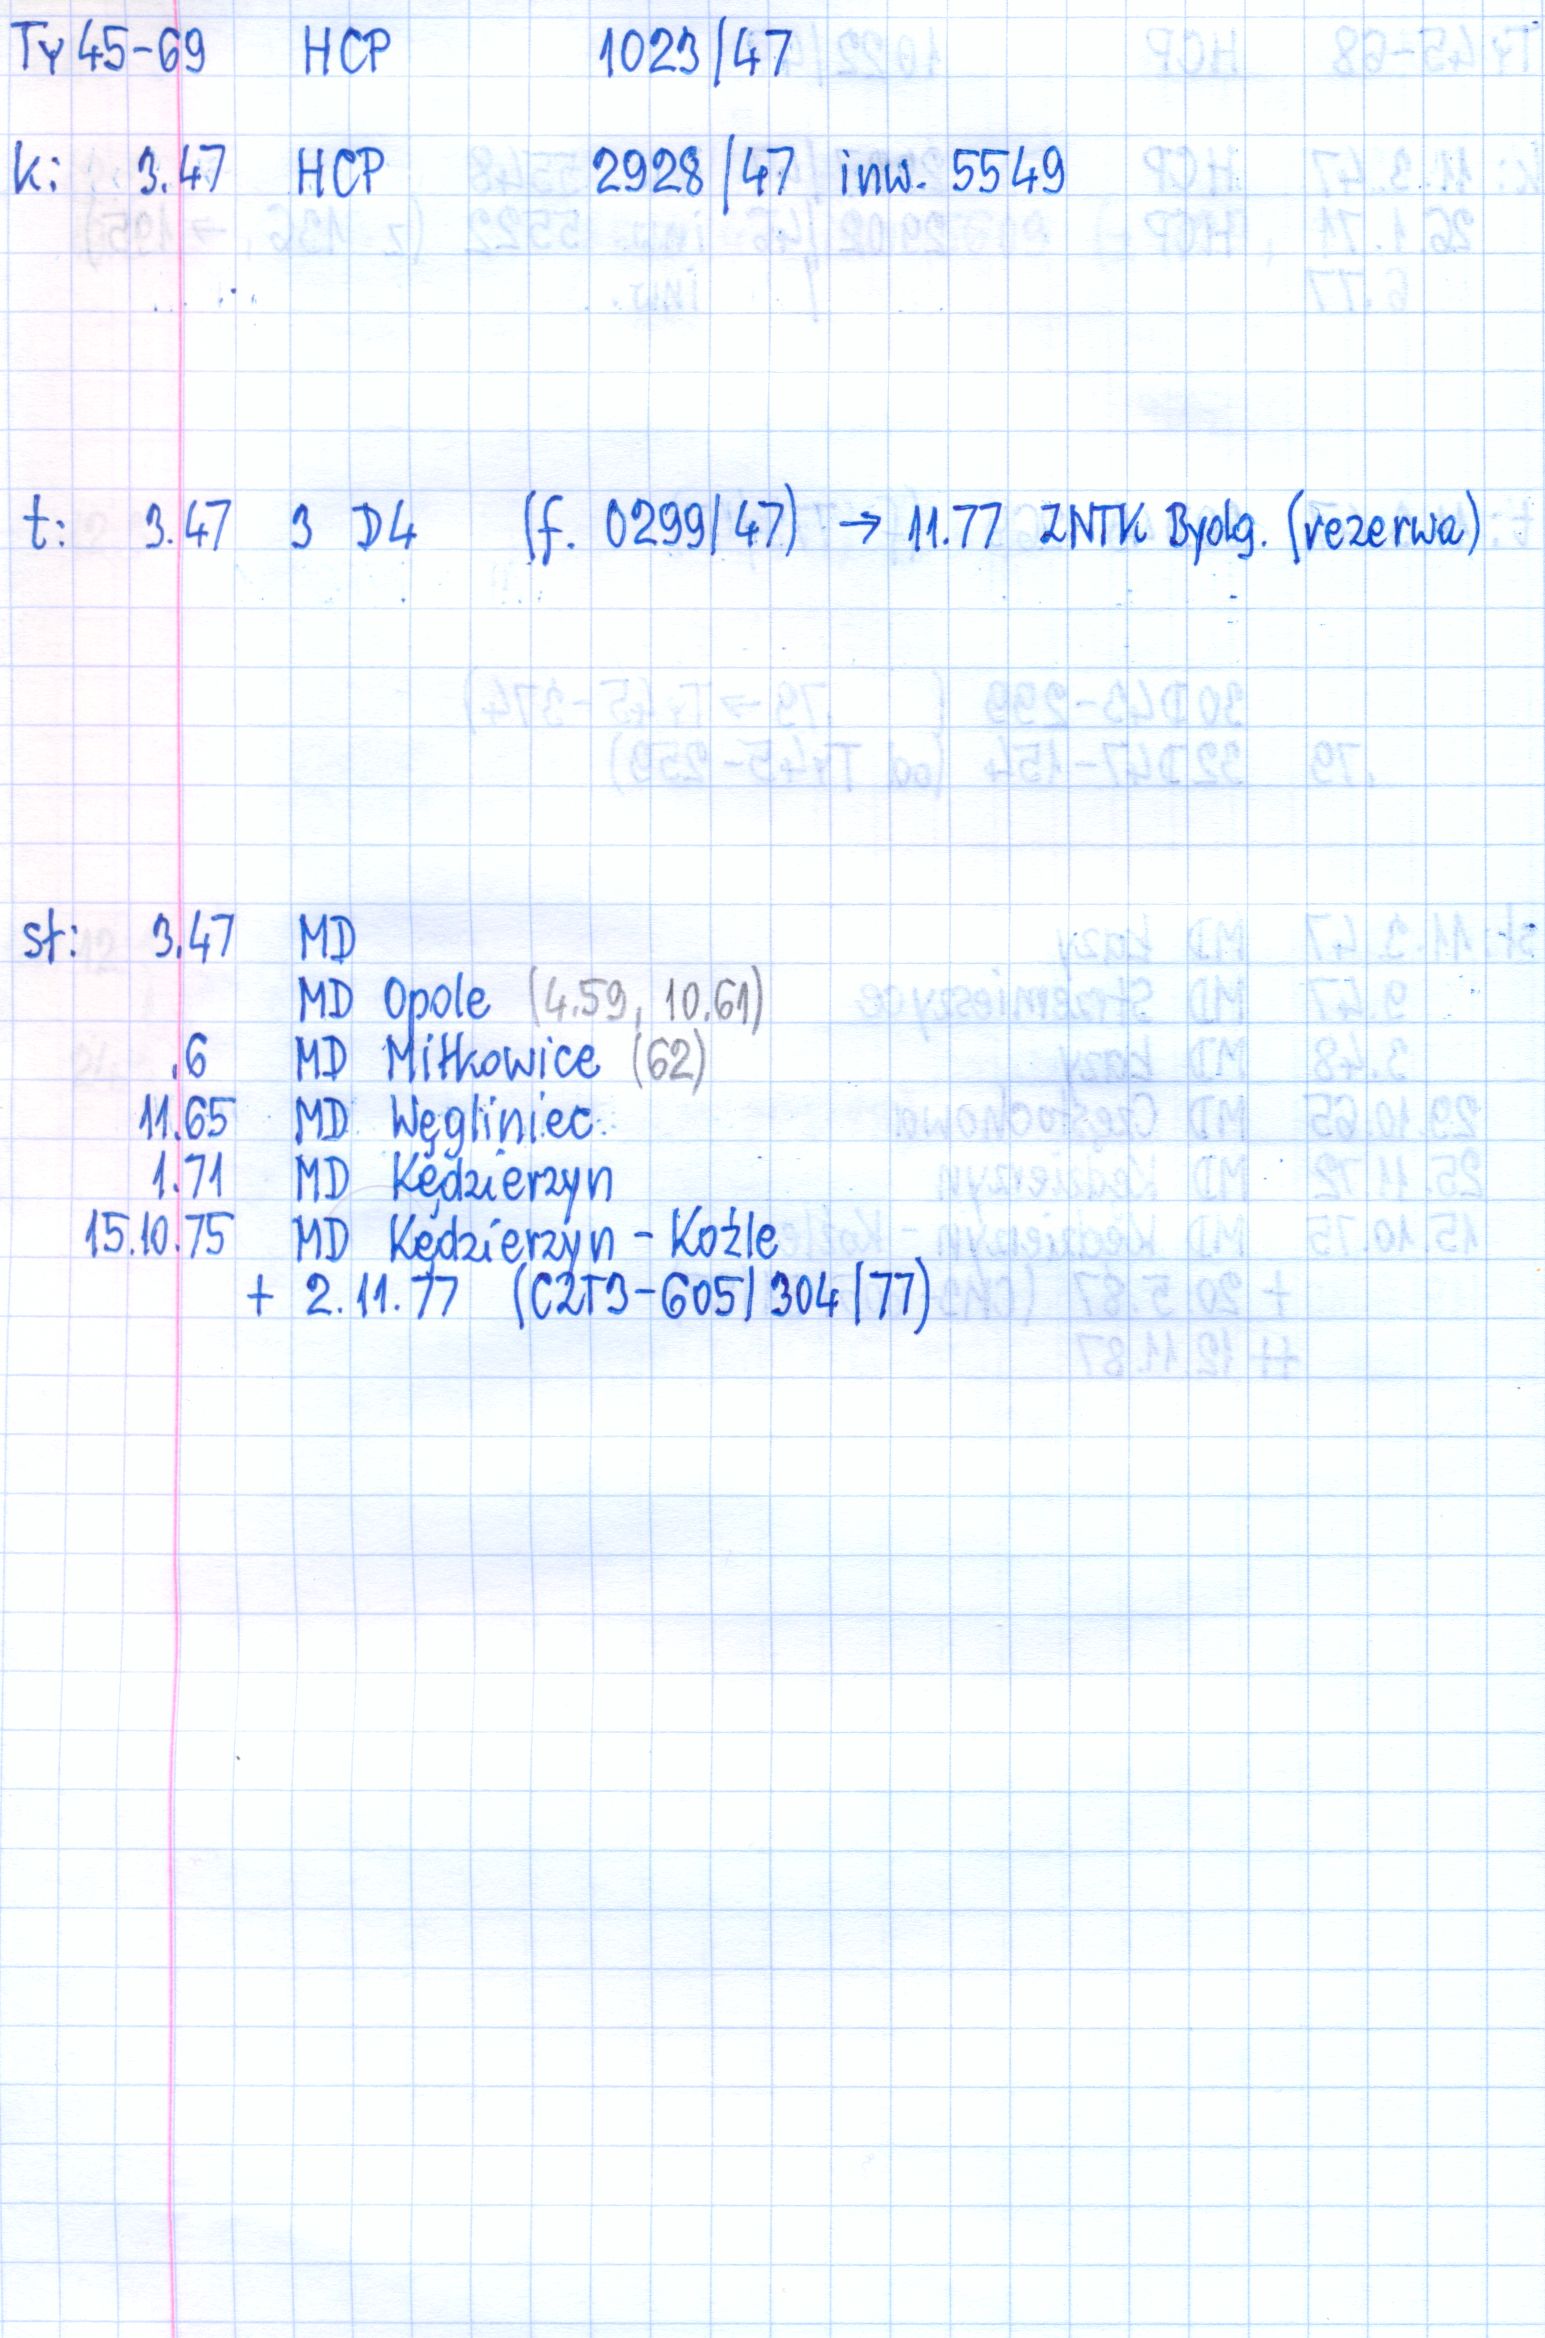 Ty45-69 HCP 1023/47
k: 3.47 HCP 2928/47 inw. 5549
t: 3.47 3 D4 (f. 0299/47) → 11.77 ZNTK Bydg. (rezerwa)
st: 3.47 MD
MD Opole (4.59, 10.61)
.6 MD Miłkowice (62)
11.65 MD Węgliniec
1.71 MD Kędzierzyn
15.10.75 MD Kędzierzyn-Koźle
+ 2.11.77 (C2T3-605/304/77)